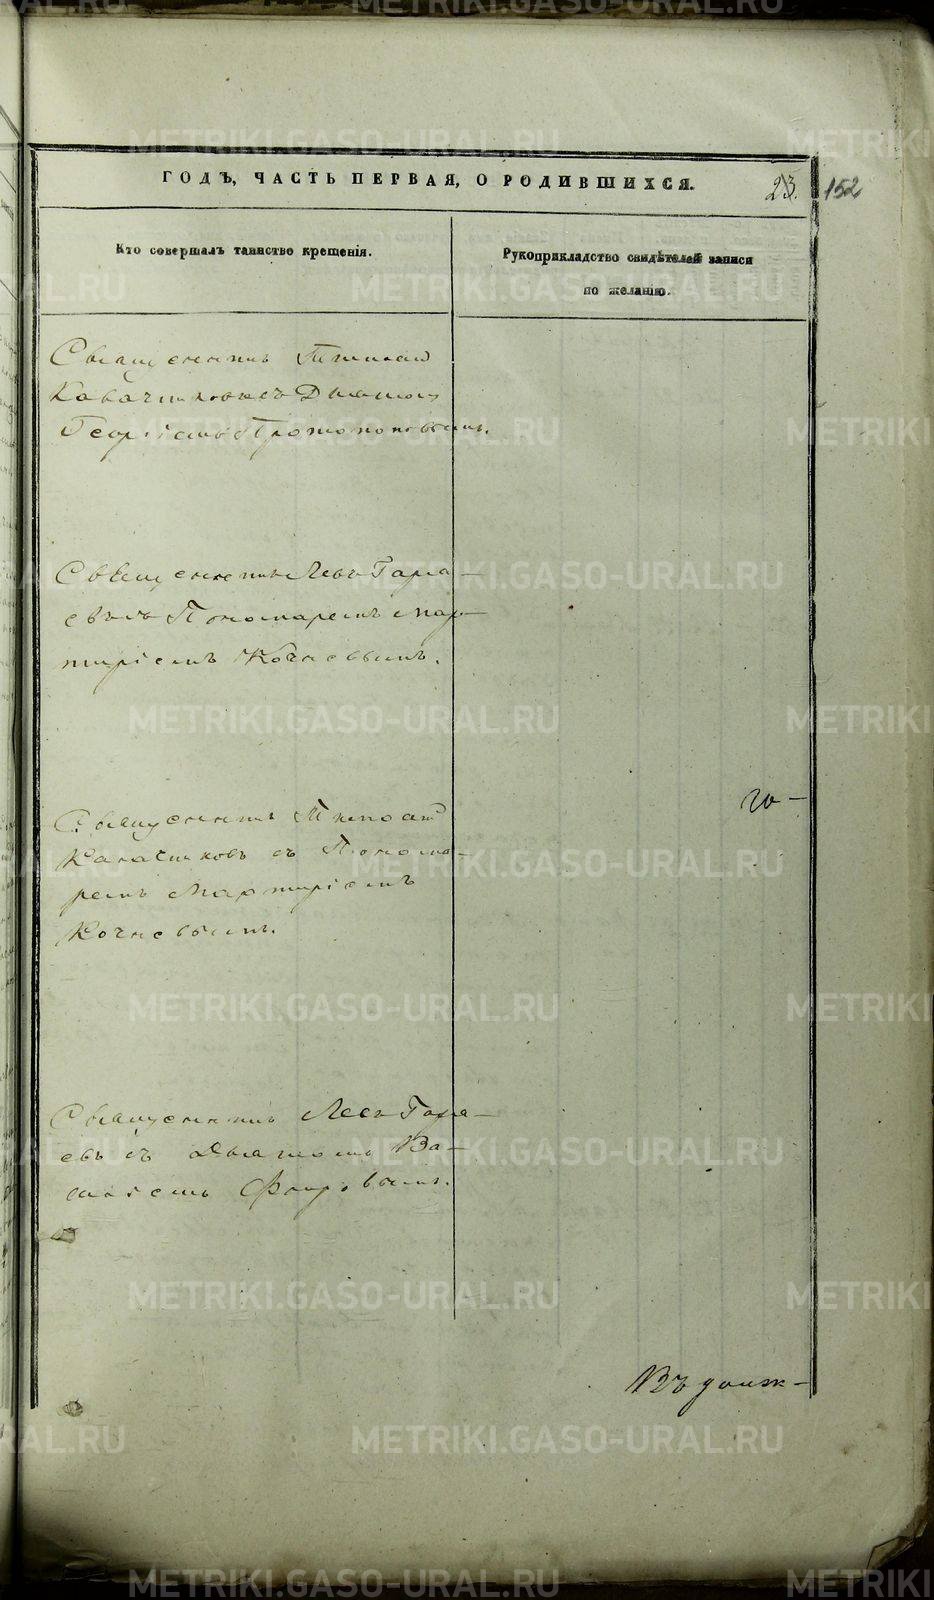 ГОДЪ, ЧАСТЬ ПЕРВАЯ, О РОДИВШИХСЯ.
23. 152
Кто совершалъ таинство крещенія.
Рукоприкладство свидѣтелей записи
по желанію.
Священникъ
съ Дьякономъ
Георгіемъ Протопоповымъ.
Священникъ Левъ Гаря-
евъ съ Пономаремъ Мар-
тиріемъ Кочневымъ.
Священникъ
Калачиковъ съ Понома-
ремъ Мартиріемъ
Кочневымъ.
го-
Священникъ Левъ Гаря-
евъ съ Дьякономъ Ва-
Въ долж-
METRIKI.GASO-URAL.RU